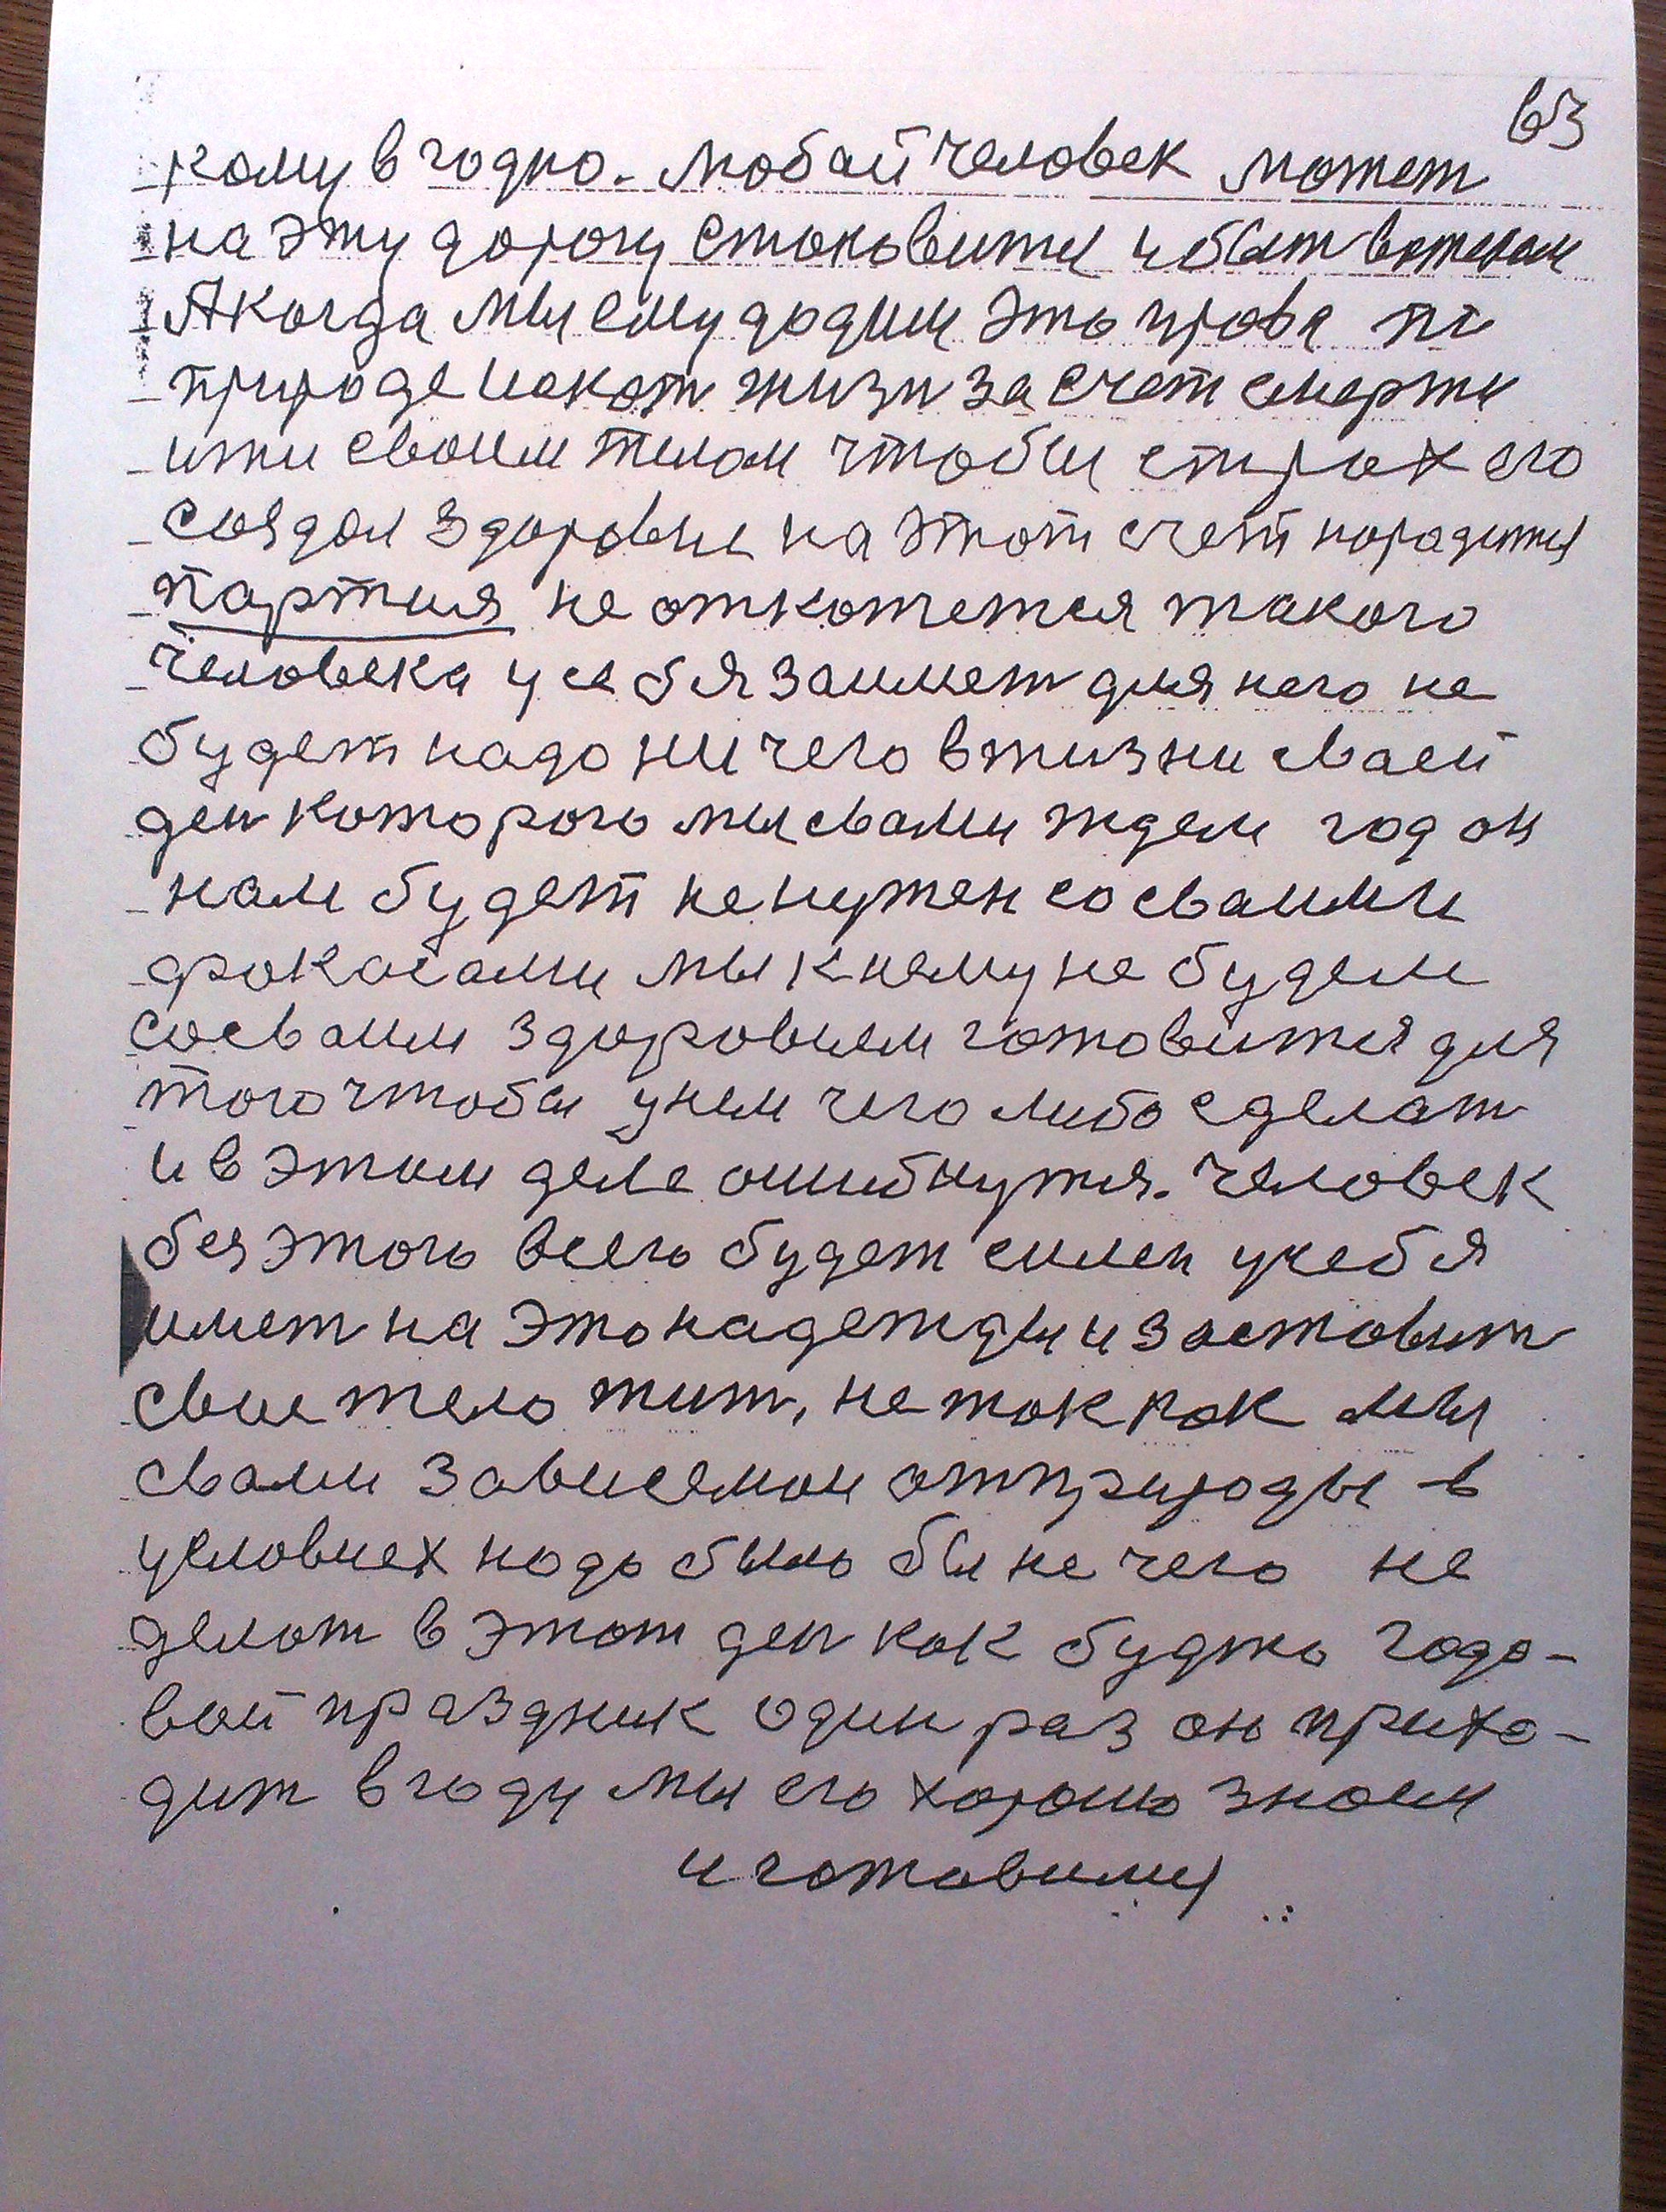 63
кому вгодно. Любай человек может
на эту дорогу становится и быт
А когда мы ему дадим это права по
природе искат жизн за счет смерти
итти своим телом чтобы страх его
создал здоровие на этот счет народится
партия не откажется такого
человека у себя заимет для него не
будет надо ни чего в жизни сваей
ден которого мы свами ждем год он
нам будет не нужен со сваими
фокосами мы к нему не будем
со сваим здоровием готовится для
того чтобы у нем чего либо сделат
и в этом деле ошибнутся. Человек
без этого всего будет силен у себя
имет на это надежды и заставит
свое тело жит, не так как мы
свами зависемои от природы в
условиех надо было бы не чего не
делат в этот ден как будто годо-
вой праздник один раз он прихо-
дит в году мы его хорошо знаем
и готовимся